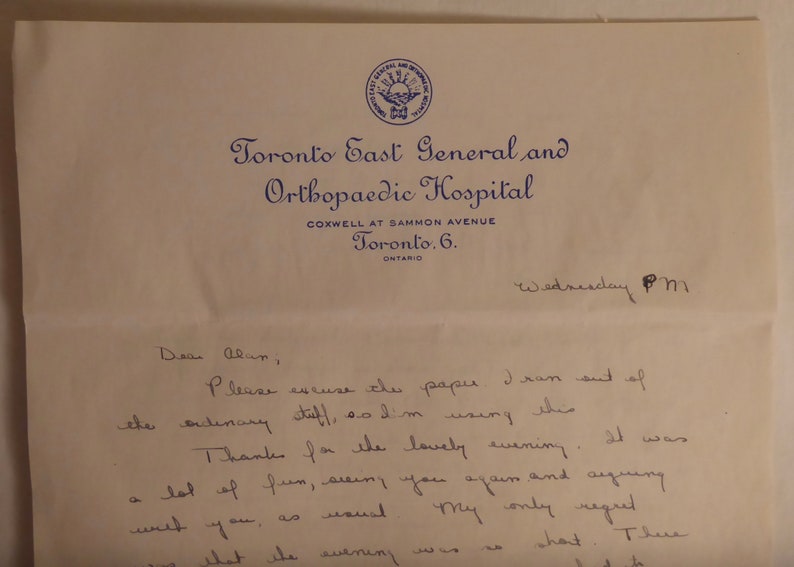 TORONTO EAST GENERAL AND ORTHOPAEDIC HOSPITAL
Toronto East General and
Orthopaedic Hospital
COXWELL AT SAMMON AVENUE
Toronto. 6.
ONTARIO
Wednesday PM.
Dear Alan,
Please excuse the paper. I ran out of
the ordinary stuff, so I'm using this
Thanks for the lovely evening. It was
a lot of fun, seeing you again and arguing
with you, as usual. My only regret
was that the evening was so short. There